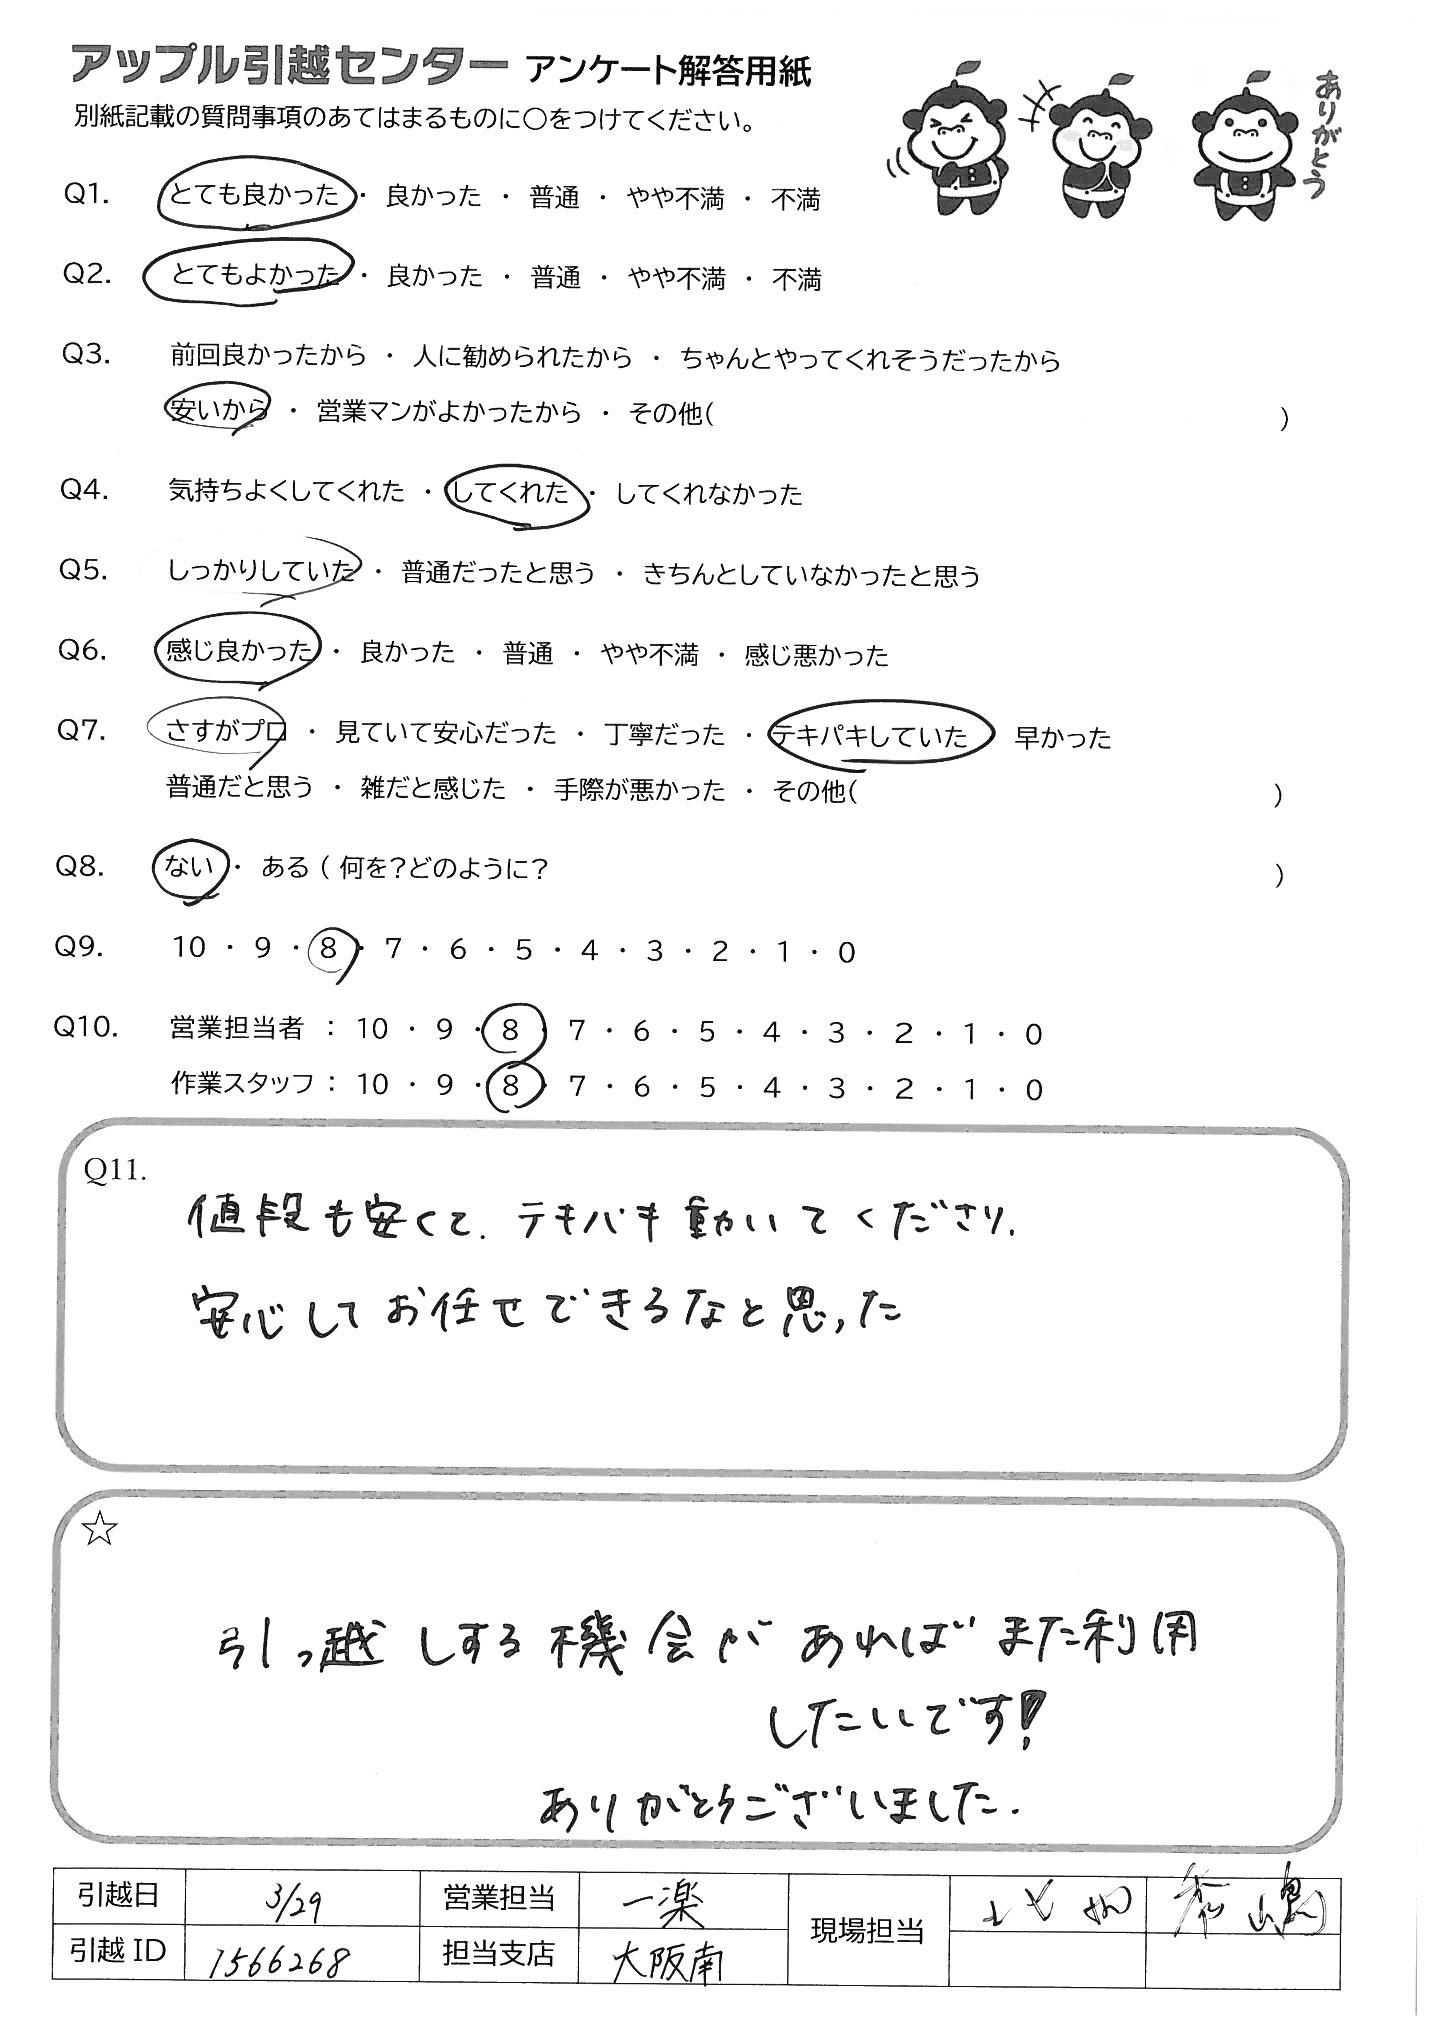 アップル引越センター アンケート解答用紙
別紙記載の質問事項のあてはまるものに○をつけてください。
ありがとう
Q1. とても良かった ・ 良かった ・ 普通 ・ やや不満 ・ 不満
Q2. とてもよかった ・ 良かった ・ 普通 ・ やや不満 ・ 不満
Q3. 前回良かったから ・ 人に勧められたから ・ ちゃんとやってくれそうだったから
安いから ・ 営業マンがよかったから ・ その他( )
Q4. 気持ちよくしてくれた ・ してくれた ・ してくれなかった
Q5. しっかりしていた ・ 普通だったと思う ・ きちんとしていなかったと思う
Q6. 感じ良かった ・ 良かった ・ 普通 ・ やや不満 ・ 感じ悪かった
Q7. さすがプロ ・ 見ていて安心だった ・ 丁寧だった ・ テキパキしていた 早かった
普通だと思う ・ 雑だと感じた ・ 手際が悪かった ・ その他( )
Q8. ない ・ ある ( 何を?どのように? )
Q9. 10 ・ 9 ・ 8 ・ 7 ・ 6 ・ 5 ・ 4 ・ 3 ・ 2 ・ 1 ・ 0
Q10. 営業担当者 : 10 ・ 9 ・ 8 ・ 7 ・ 6 ・ 5 ・ 4 ・ 3 ・ 2 ・ 1 ・ 0
作業スタッフ : 10 ・ 9 ・ 8 ・ 7 ・ 6 ・ 5 ・ 4 ・ 3 ・ 2 ・ 1 ・ 0
Q11.
値段も安くて、テキパキ動いてくださり、
安心してお任せできるなと思った
☆
引っ越しする機会があればまた利用
したいです!
ありがとうございました.
引越日 3/29 営業担当 一楽 現場担当
引越ID 1566268 担当支店 大阪南